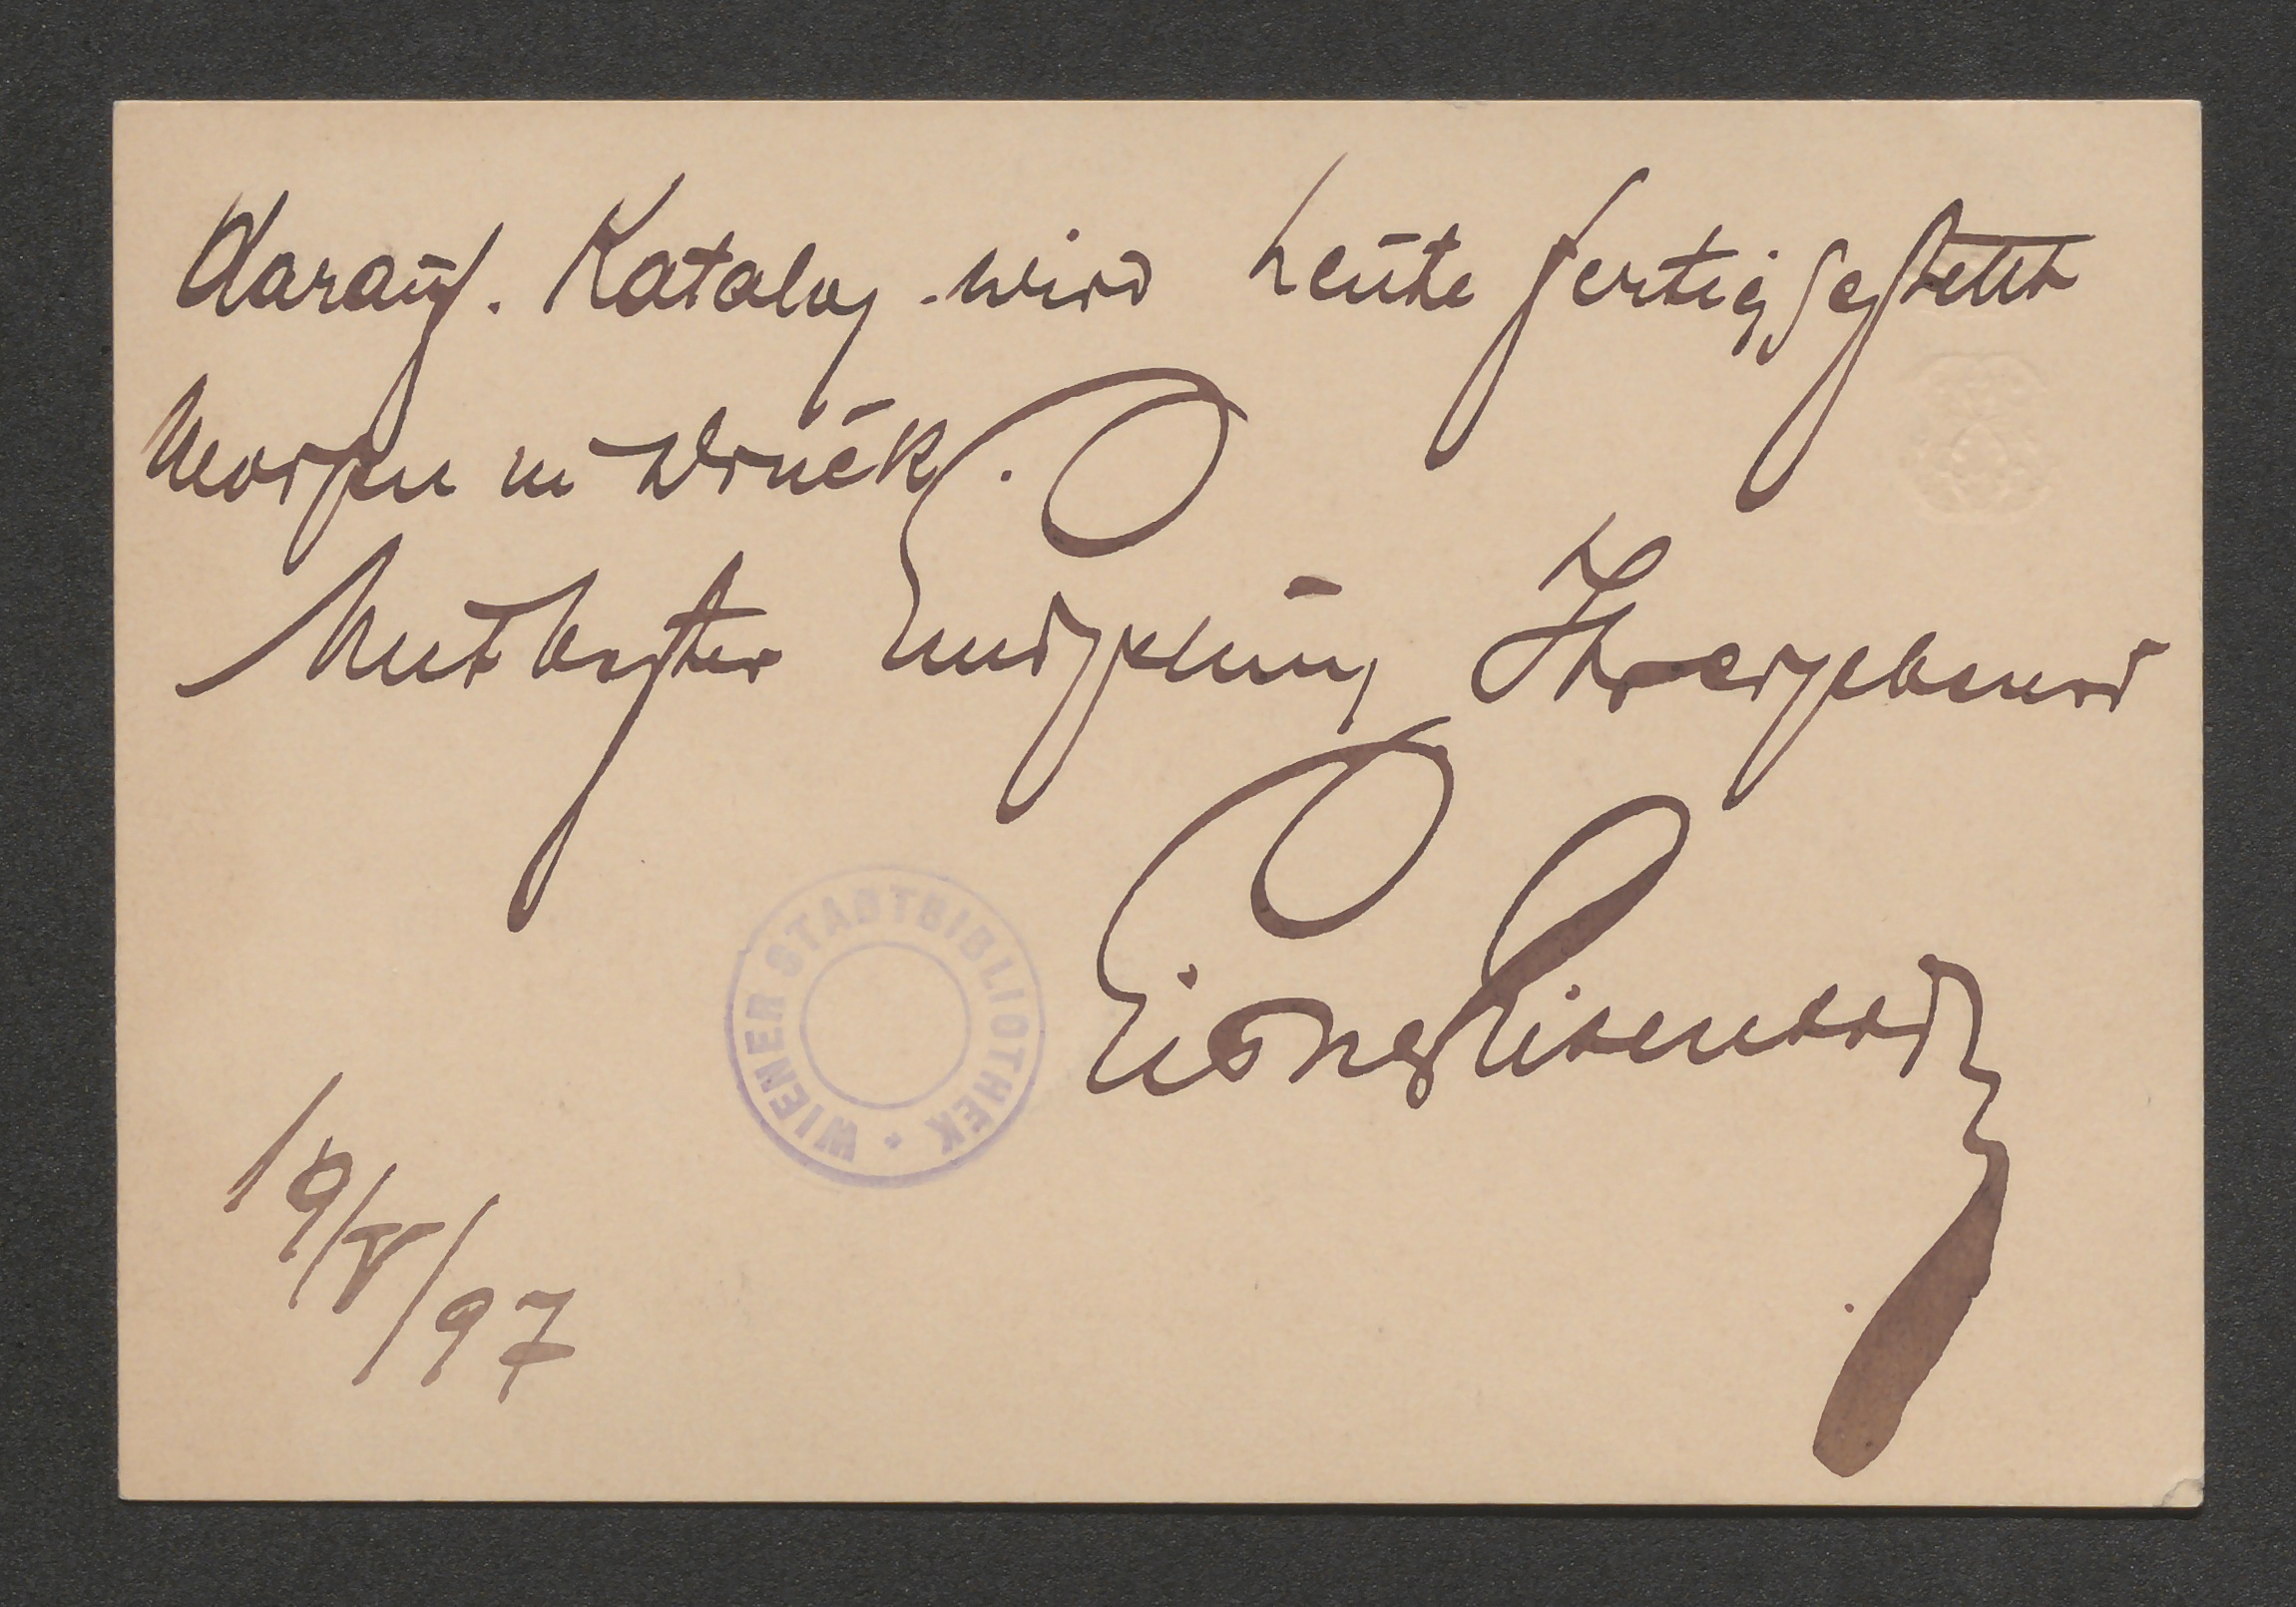 darauf. Katalog wird heute fertiggestellt
Morgen in Druck.
Mit bester Empfehlung Ihr ergebenst
WIENER STADTBIBLIOTHEK
19/V/97